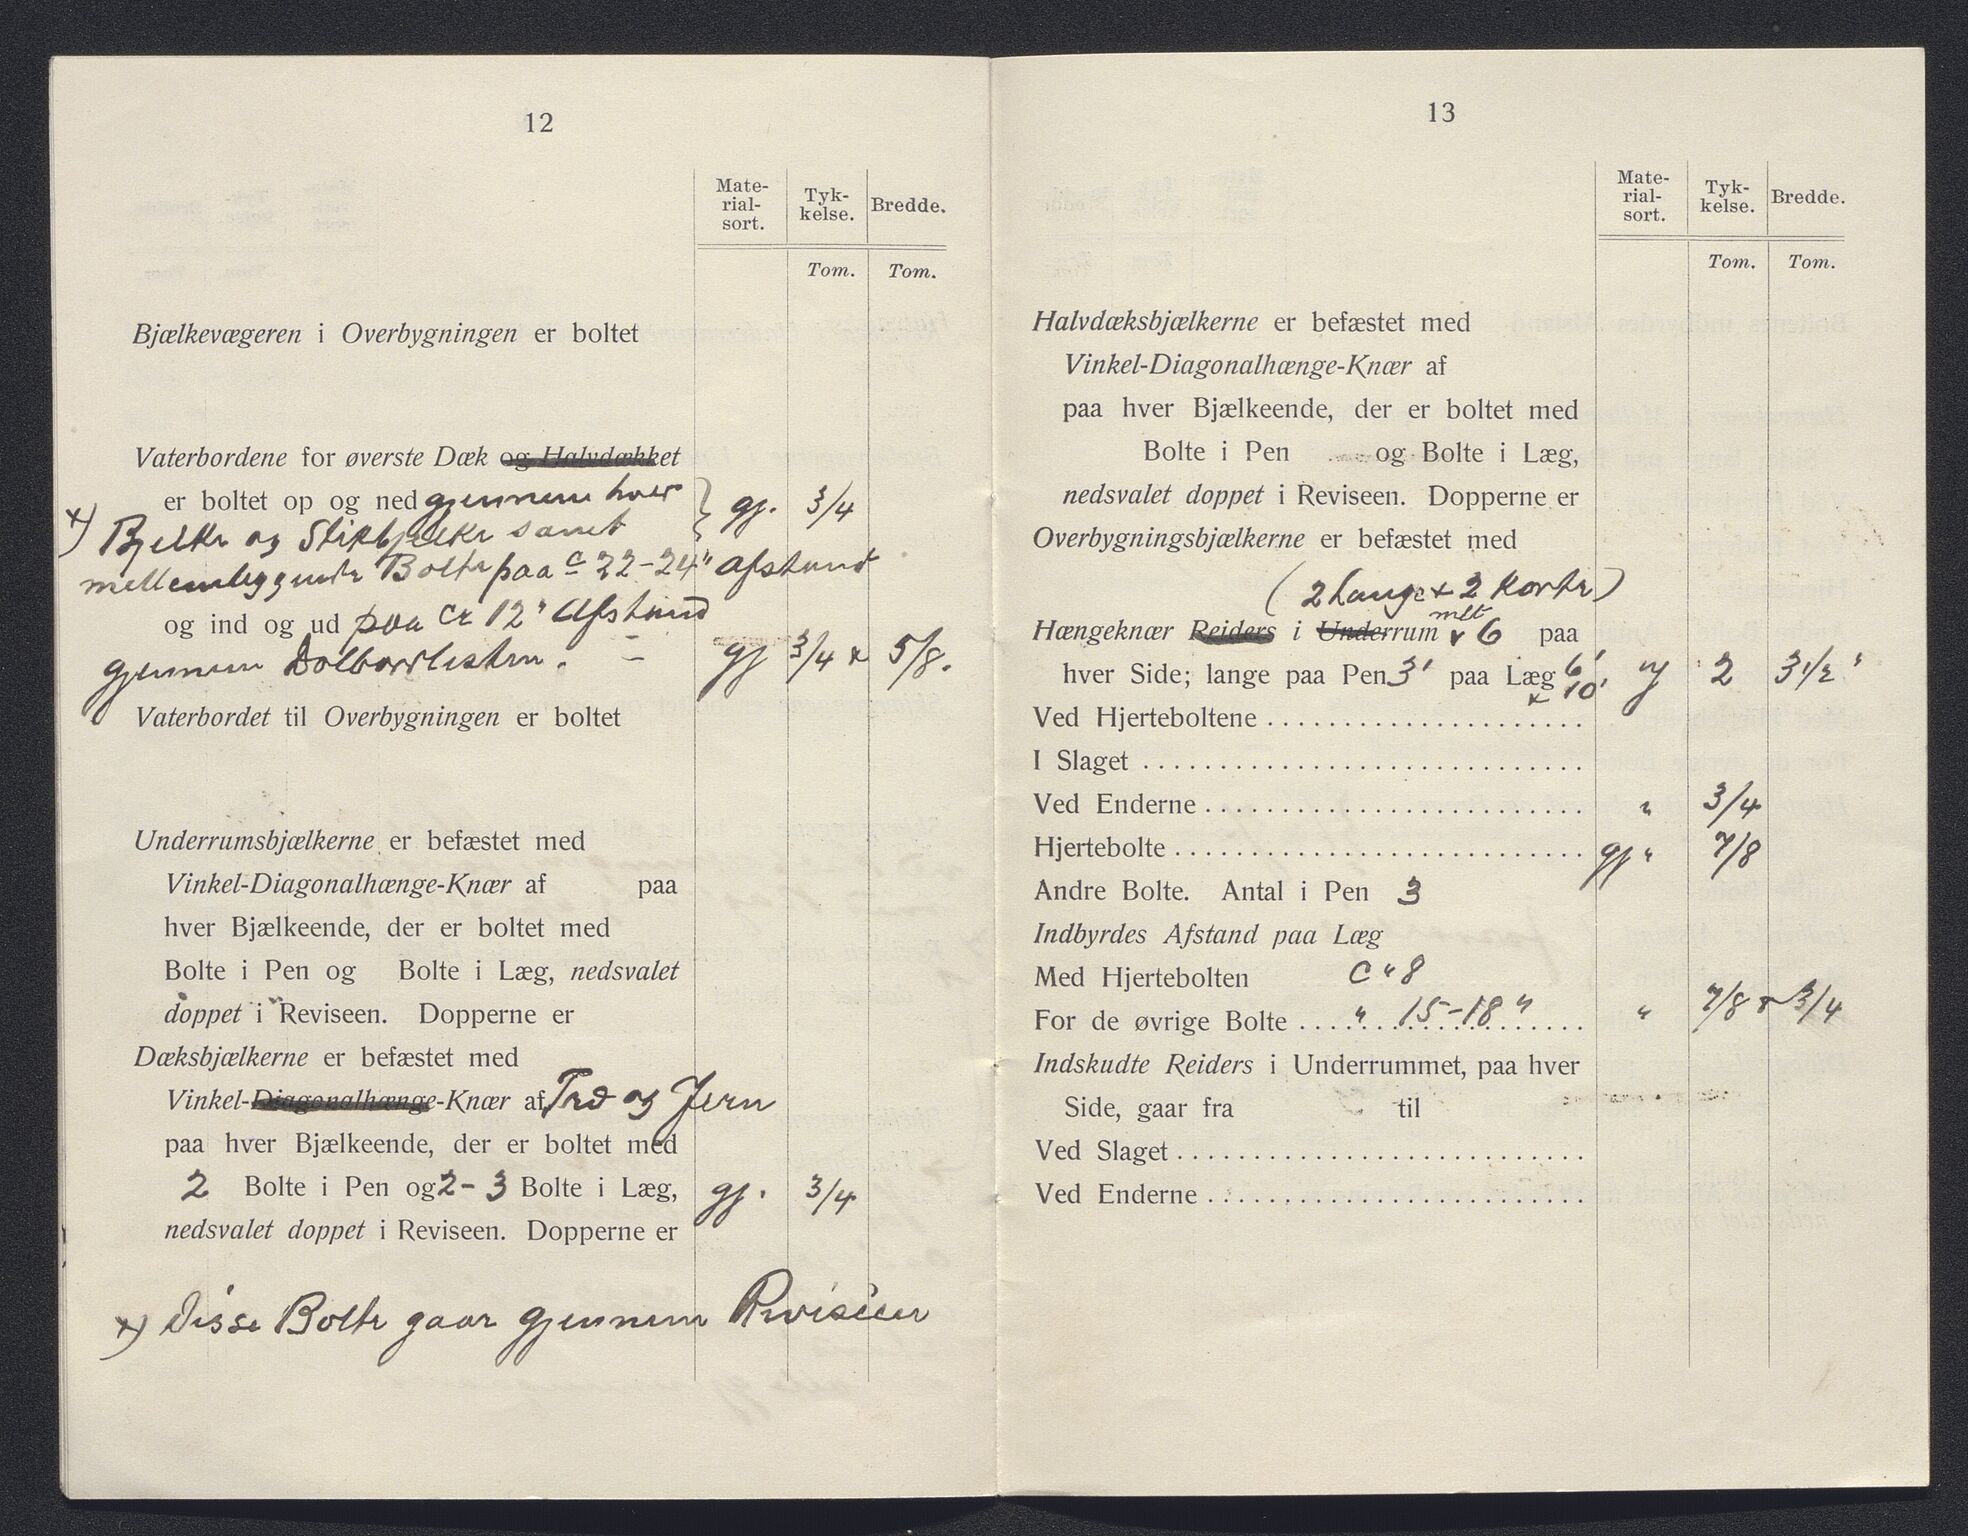 12
Mate-
rial-
sort.
Tyk-
kelse.
Bredde.
Tom.
Tom.
Bjælkevægeren i Overbygningen er boltet
Vaterbordene for øverste Dæk og Halvdækket
er boltet op og ned gjennem hver gj. 3/4
x) Bjelke og Stikbjelke samt
mellemliggende Bolte paa c 22-24" afstand
og ind og ud paa ca 12" Afstand
gjennem Dolbordlisten. - gj 3/4 x 5/8.
Vaterbordet til Overbygningen er boltet
Underrumsbjælkerne er befæstet med
Vinkel-Diagonalhænge-Knær af paa
hver Bjælkeende, der er boltet med
Bolte i Pen og Bolte i Læg, nedsvalet
doppet i Reviseen. Dopperne er
Dæksbjælkerne er befæstet med
Vinkel-Diagonalhænge-Knær af Træ og Jern
paa hver Bjælkeende, der er boltet med
2 Bolte i Pen og 2-3 Bolte i Læg, gj. 3/4
nedsvalet doppet i Reviseen. Dopperne er
x) Disse Bolte gaar gjennem
13
Mate-
rial-
sort.
Tyk-
kelse.
Bredde.
Tom.
Tom.
Halvdæksbjælkerne er befæstet med
Vinkel-Diagonalhænge-Knær af
paa hver Bjælkeende, der er boltet med
Bolte i Pen og Bolte i Læg,
nedsvalet doppet i Reviseen. Dopperne er
Overbygningsbjælkerne er befæstet med
(2 Lange + 2 Korte)
Hængeknær Reiders i Underrum 6 paa
hver Side; lange paa Pen 3' paa Læg 6' 2 3 1/2"
x 10'
Ved Hjerteboltene
I Slaget
Ved Enderne " 3/4
Hjertebolte gj " 7/8
Andre Bolte. Antal i Pen 3
Indbyrdes Afstand paa Læg
Med Hjertebolten C " 8
For de øvrige Bolte " 15-18" " 7/8 x 3/4
Indskudte Reiders i Underrummet, paa hver
Side, gaar fra til
Ved Slaget
Ved Enderne